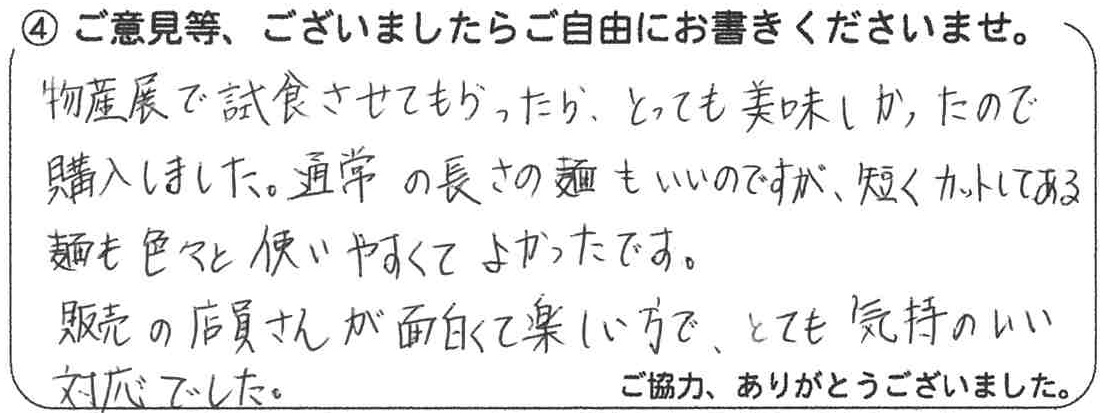 ④ ご意見等、ございましたらご自由にお書きくださいませ。
物産展で試食させてもらったら、とっても美味しかったので
購入しました。通常の長さの麺もいいのですが、短くカットしてある
麺も色々と使いやすくてよかったです。
販売の店員さんが面白くて楽しい方で、とても気持のいい
対応でした。
ご協力、ありがとうございました。